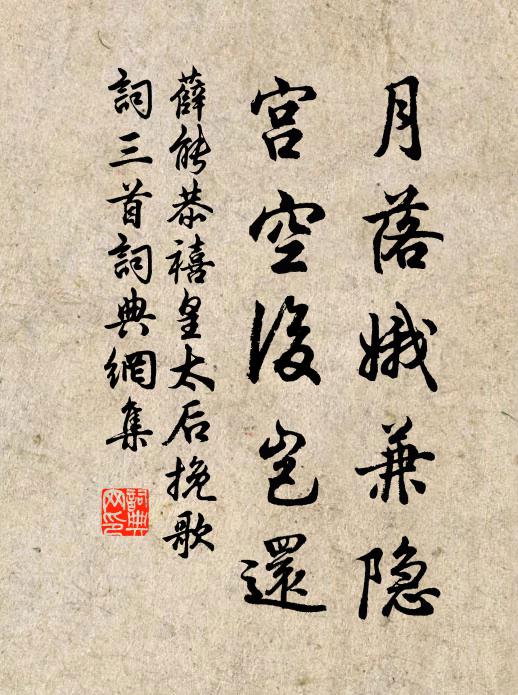 月落娥兼隐
宫空后岂還
薛能恭禧皇太后挽歌
詞三首詞典網集
詞典网印